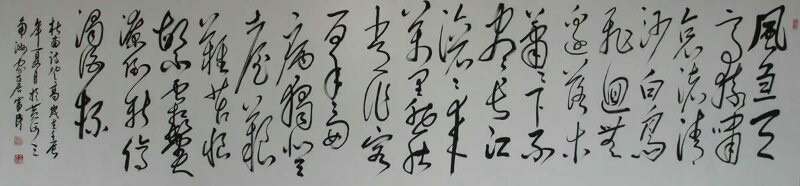 風急天
高猿嘯
哀渚清
沙白鳥
飛迴無
邊落木
蕭蕭下不
盡長江
滾滾來
萬里悲秋
常作客
百年多
病獨登
臺艱
難苦恨
繁霜鬢
潦倒新停
濁酒杯
杜甫詩登高歲在
年夏月於黃河三